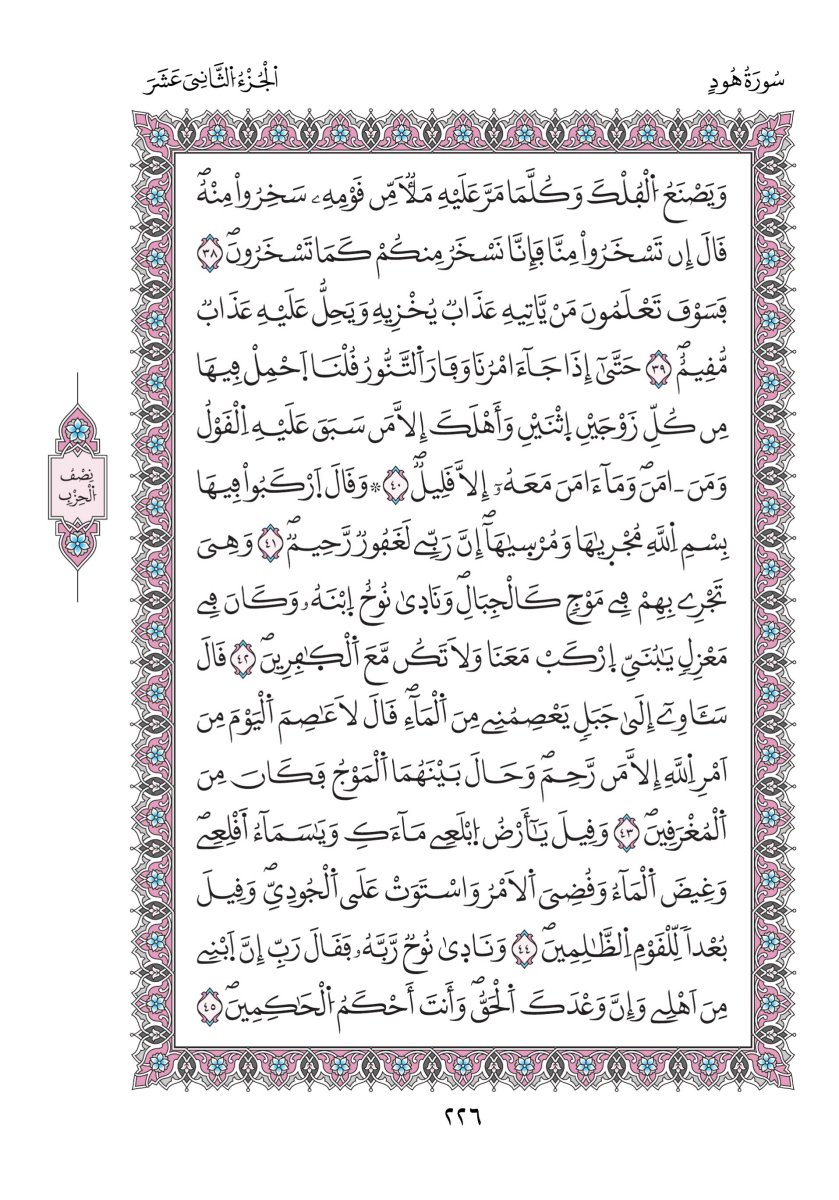 سُورَةُ هُودٍ
اَ۬لْجُزْءُ اُ۬لثَّانِيَ عَشَرَ
وَيَصْنَعُ اُ۬لْفُلْكَ وَكُلَّمَا مَرَّ عَلَيْهِ مَلَأٌ مِّن قَوْمِهِۦ سَخِرُواْ مِنْهُۖ
قَالَ إِن تَسْخَرُواْ مِنَّا فَإِنَّا نَسْخَرُ مِنكُمْ كَمَا تَسْخَرُونَۖ ٣٨
فَسَوْفَ تَعْلَمُونَ مَنْ يَّاتِيهِ عَذَابٞ يُخْزِيهِ وَيَحِلُّ عَلَيْهِ عَذَابٞ
مُّقِيمٌۖ ٣٩ حَتَّىٰٓ إِذَا جَآءَ امْرُنَا وَفَارَ اَ۬لتَّنُّورُ قُلْنَا اَ۪حْمِلْ فِيهَا
مِن كُلِّ زَوْجَيْنِ اِ۪ثْنَيْنِ وَأَهْلَكَ إِلَّا مَن سَبَقَ عَلَيْهِ اِ۬لْقَوْلُ
وَمَنَ اٰمَنَۖ وَمَآ ءَامَنَ مَعَهُۥٓ إِلَّا قَلِيلٞۖ ٤٠ ۞وَقَالَ اَ۪رْكَبُواْ فِيهَا
بِسْمِ اِ۬للَّهِ مُجْر۪ىٰهَا وَمُرْس۪ىٰهَآۖ إِنَّ رَبِّے لَغَفُورٞ رَّحِيمٞۖ ٤١ وَهِيَ
تَجْرِے بِهِمْ فِے مَوْجٖ كَالْجِبَالِۖ وَنَاد۪ىٰ نُوحٌ اِ۪بْنَهُۥ وَكَانَ فِے
مَعْزِلٖ يَٰبُنَيِّ اِ۪رْكَبْ مَعَنَا وَلَا تَكُن مَّعَ اَ۬لْكٰ۪فِرِينَۖ ٤٢ قَالَ
سَـَٔاوِےٓ إِلَىٰ جَبَلٖ يَعْصِمُنِے مِنَ اَ۬لْمَآءِۖ قَالَ لَا عَاصِمَ اَ۬لْيَوْمَ مِنَ
اَمْرِ اِ۬للَّهِ إِلَّا مَن رَّحِمَۖ وَحَالَ بَيْنَهُمَا اَ۬لْمَوْجُ فَكَانَ مِنَ
اَ۬لْمُغْرَقِينَۖ ٤٣ وَقِيلَ يَٰٓأَرْضُ اُ۪بْلَعِے مَآءَكِ وَيَٰسَمَآءُ اَقْلِعِےۖ
وَغِيضَ اَ۬لْمَآءُ وَقُضِيَ اَ۬لَامْرُ وَاسْتَوَتْ عَلَى اَ۬لْجُودِيِّۖ وَقِيلَ
بُعْداٗ لِّلْقَوْمِ اِ۬لظَّٰلِمِينَۖ ٤٤ وَنَاد۪ىٰ نُوحٞ رَّبَّهُۥ فَقَالَ رَبِّ إِنَّ اَ۪بْنِے
مِنَ اَهْلِے وَإِنَّ وَعْدَكَ اَ۬لْحَقُّۖ وَأَنتَ أَحْكَمُ اُ۬لْحَٰكِمِينَۖ ٤٥
نِصْفُ
اُ۬لْحِزْبِ
٢٢٦